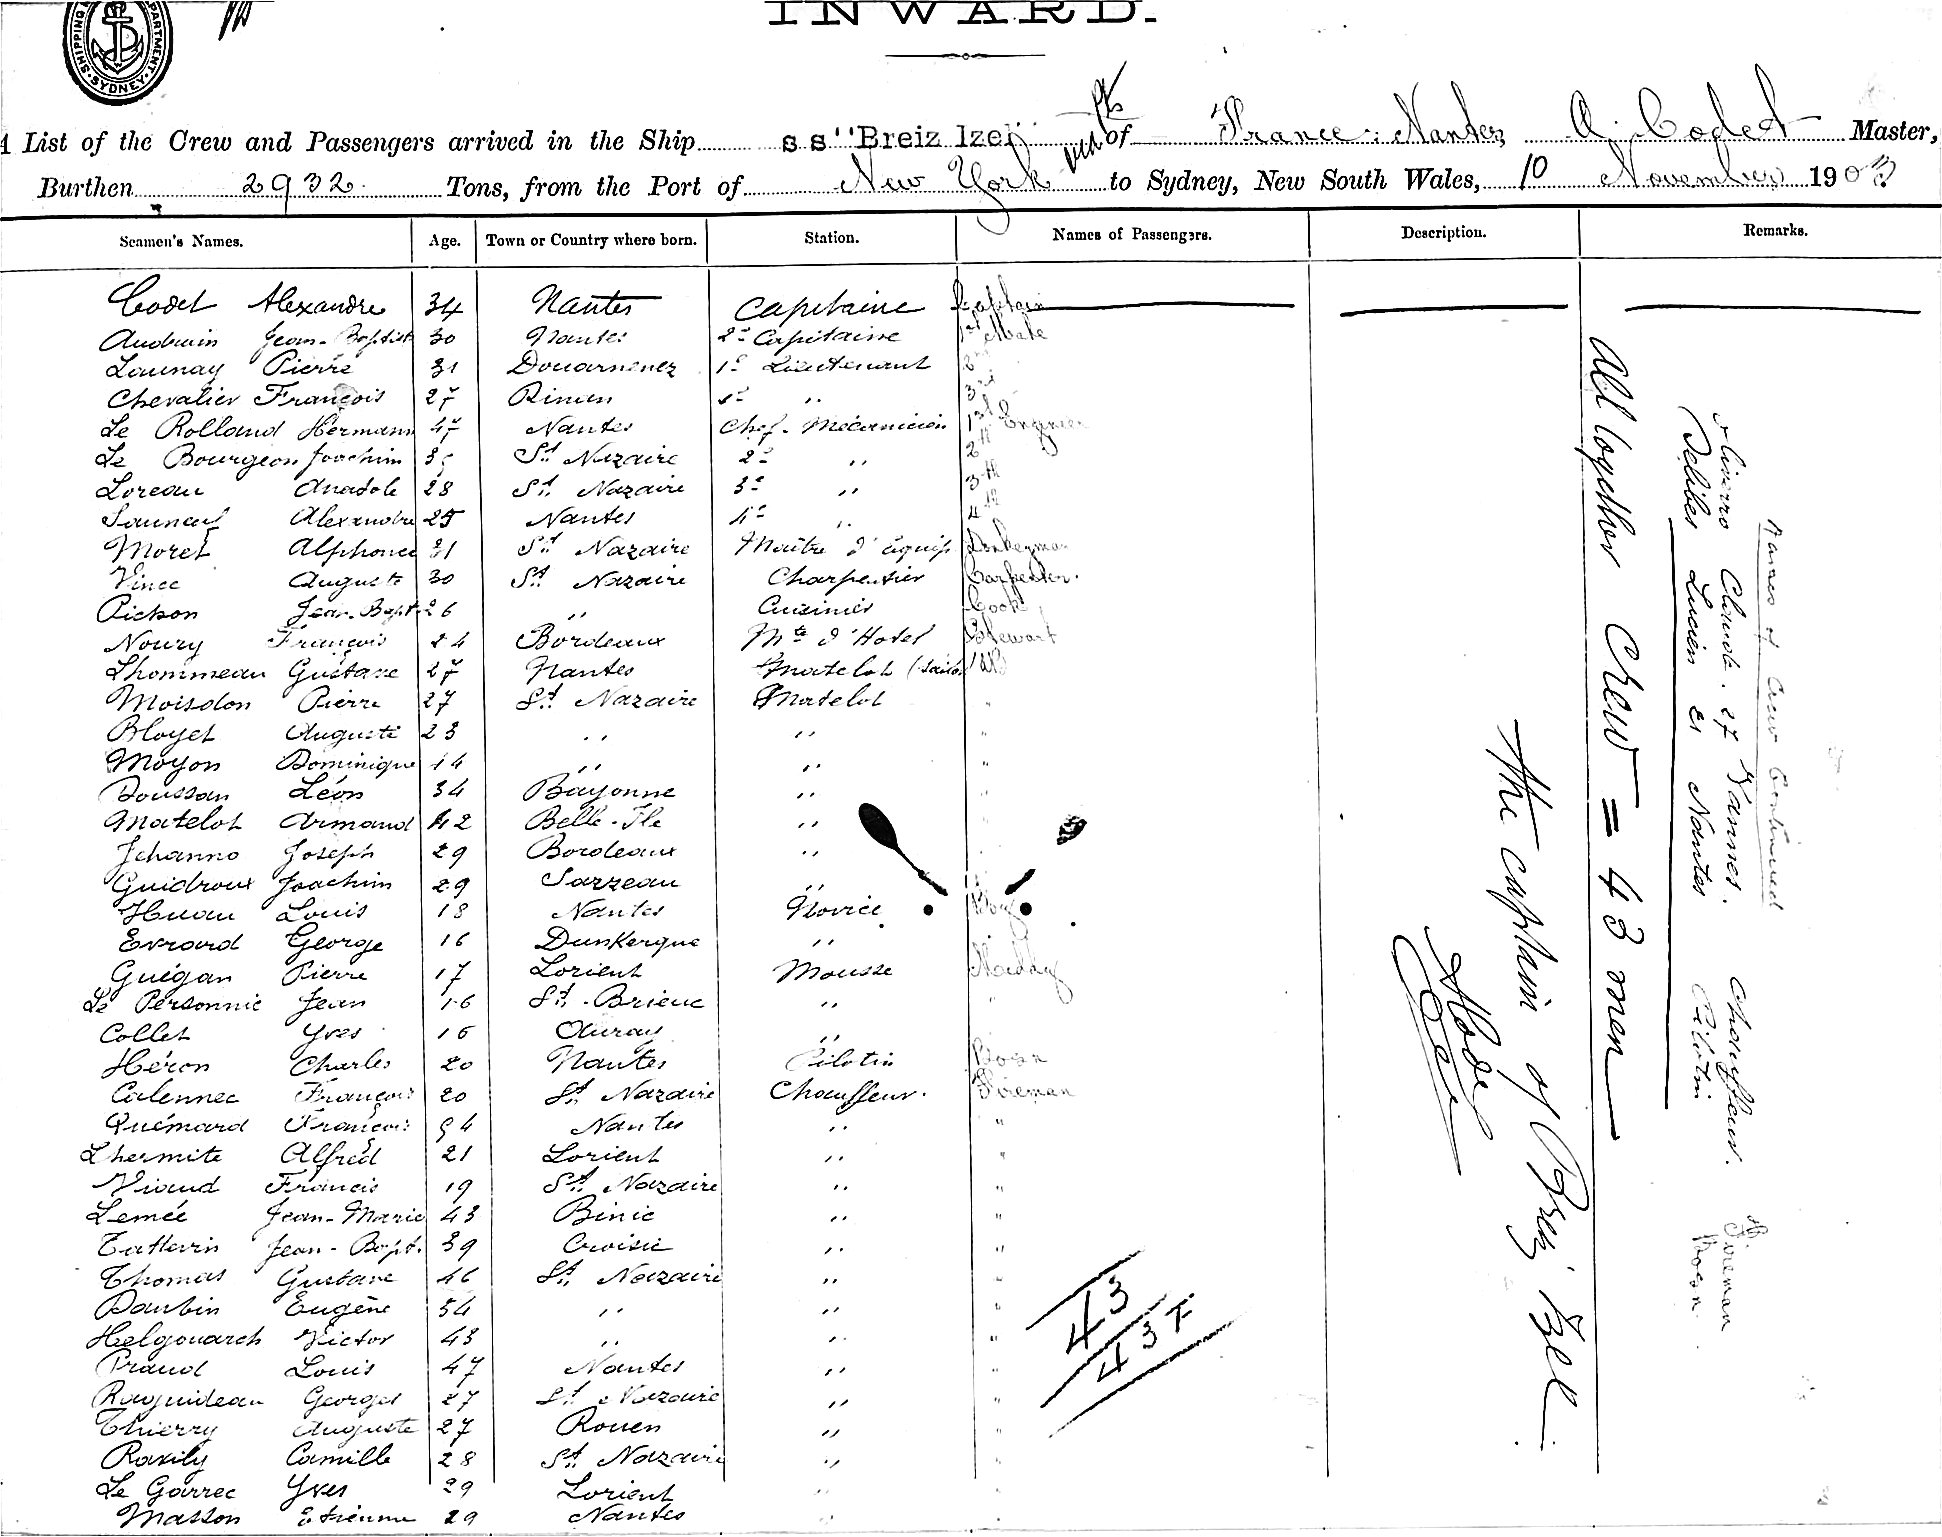 INWARD.
SHIPPING DEPARTMENT · SYDNEY ·
A List of the Crew and Passengers arrived in the Ship ss "Breiz Izel" of France: Nantes, A. Codet Master,
Burthen 2932 Tons, from the Port of New York to Sydney, New South Wales, 10 November 1903
Seamen's Names. Age. Town or Country where born. Station. Names of Passengers. Description. Remarks.
Codet Alexandre 34 Nantes Capitaine Captain
Auduin Jean-Baptist 30 Nantes 2e Capitaine 1st Mate
Launay Pierre 31 Douarnenez 1e Lieutenant 2nd
Chevalier François 27 3rd
Le Rolland Hermann 47 Nantes Chef-Mécanicien 1st Engineer
Le Bourgeon Joachim St Nazaire 2e ,, 2d
Loreau Anatole 28 St Nazaire 3e ,, 3th
Alexandre 25 Nantes 4e ,, 4th
Moret Alphonce 31 St Nazaire Maitre d'équip Donkeyman
Vince Auguste 30 St Nazaire Charpentier Carpenter.
Pichon Jean-Bapt 26 ,, Cuisinier Cook
Noury François 24 Bordeaux Mte d'Hotel Stewart
Lhommeau Gustave 27 Nantes Matelot (sailor) AB
Moisdon Pierre 27 St Nazaire Matelot "
Bloyet Auguste 23 ,, ,, "
Moyon Dominique 14 ,, ,, "
Doussan Léon 34 Bayonne ,, "
Matelot Armand 42 Belle-Ile ,,
Jehanno Joseph 29 Bordeaux ,, "
Guidroux Joachim 29 Sarzeau ,,
Huau Louis 18 Nantes Novice Boy
Evrard George 16 Dunkerque ,,
Guégan Pierre 17 Lorient Mousse Middy
Le Personnic Jean 16 St-Brieuc ,, "
Collet Yves 16 Auray ,,
Héron Charles 20 Nantes Pilotin Bosn
Calennec François 20 St Nazaire Chauffeur. Fireman
Quémard François 54 Nantes ,, "
Lhermite Alfred 21 Lorient ,, "
Viaud Francis 19 St Nazaire ,, "
Lemée Jean-Marie 43 Binic ,, "
Tattevin Jean-Bapt. 39 Croisic ,, "
Thomas Gustave 46 St Nazaire ,, "
Daubin Eugène 54 ,, ,, "
Helgouarch Victor 43 ,, ,, "
Praud Louis 47 Nantes ,, "
Raguideau Georges 27 St Nazaire ,, "
Thierry Auguste 27 Rouen ,, "
Ravily Camille 28 St Nazaire ,, "
Le Garrec Yves 29 Lorient ,,
Masson Etienne 29 Nantes ,,
43
437
Names of Crew Continued
Oliviero Claude. 27 Vannes. Chauffeur. Fireman
Delibes Lucien 21 Nantes Pilotin Bosn
All together Crew = 43 men
The captain of Breiz Izel